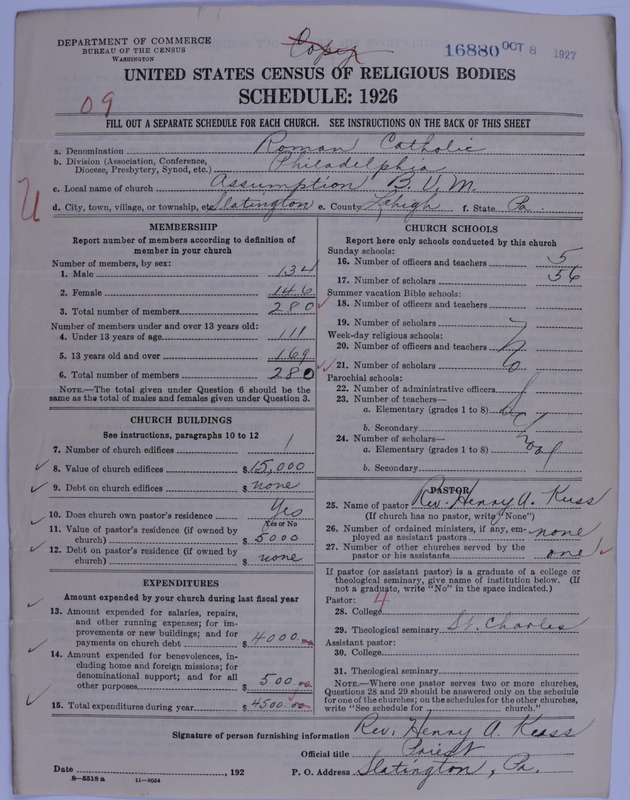 DEPARTMENT OF COMMERCE
BUREAU OF THE CENSUS
WASHINGTON
Copy
16880 OCT 8 1927
UNITED STATES CENSUS OF RELIGIOUS BODIES
SCHEDULE: 1926
09
FILL OUT A SEPARATE SCHEDULE FOR EACH CHURCH. SEE INSTRUCTIONS ON THE BACK OF THIS SHEET
a. Denomination Roman Catholic
b. Division (Association, Conference, Diocese, Presbytery, Synod, etc.) Philadelphia
c. Local name of church Assumption B.V.M.
d. City, town, village, or township, etc. Slatington e. County Lehigh f. State Pa.
MEMBERSHIP
Report number of members according to definition of
member in your church
Number of members, by sex:
1. Male 134
2. Female 146
3. Total number of members 280
Number of members under and over 13 years old:
4. Under 13 years of age 111
5. 13 years old and over 169
6. Total number of members 280
NOTE.—The total given under Question 6 should be the
same as the total of males and females given under Question 3.
CHURCH BUILDINGS
See instructions, paragraphs 10 to 12
7. Number of church edifices 1
8. Value of church edifices $15,000
9. Debt on church edifices $none
10. Does church own pastor's residence Yes
Yes or No
11. Value of pastor's residence (if owned by
church) $5000
12. Debt on pastor's residence (if owned by
church) $none
EXPENDITURES
Amount expended by your church during last fiscal year
13. Amount expended for salaries, repairs,
and other running expenses; for im-
provements or new buildings; and for
payments on church debt $4000.00
14. Amount expended for benevolences, in-
cluding home and foreign missions; for
denominational support; and for all
other purposes $500.00
15. Total expenditures during year $4500.00
CHURCH SCHOOLS
Report here only schools conducted by this church
Sunday schools:
16. Number of officers and teachers 5
17. Number of scholars 56
Summer vacation Bible schools:
18. Number of officers and teachers
19. Number of scholars
Week-day religious schools:
20. Number of officers and teachers
21. Number of scholars
Parochial schools:
22. Number of administrative officers
23. Number of teachers—
a. Elementary (grades 1 to 8)
b. Secondary
24. Number of scholars—
a. Elementary (grades 1 to 8)
b. Secondary
PASTOR
25. Name of pastor Rev. Henry A. Kuss
(If church has no pastor, write "None")
26. Number of ordained ministers, if any, em-
ployed as assistant pastors none
27. Number of other churches served by the
pastor or his assistants one
If pastor (or assistant pastor) is a graduate of a college or
theological seminary, give name of institution below. (If
not a graduate, write "No" in the space indicated.)
Pastor: 4
28. College
29. Theological seminary St. Charles
Assistant pastor:
30. College
31. Theological seminary
NOTE.—Where one pastor serves two or more churches,
Questions 28 and 29 should be answered only on the schedule
for one of the churches; on the schedules for the other churches,
write "See schedule for church."
Signature of person furnishing information Rev. Henry A. Kuss
Official title Priest
Date , 192 P. O. Address Slatington, Pa.
8—5518 a 11—9054